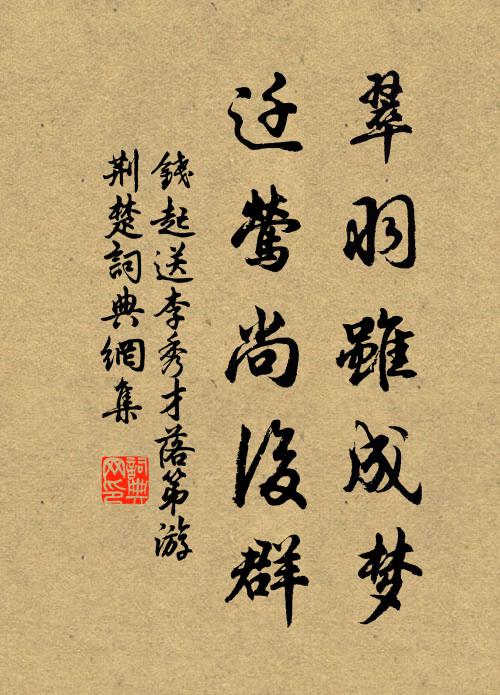 翠羽雖成梦
迁鶯尚後群
錢起送李秀才落第游
荆楚詞典網集
詞典
网印